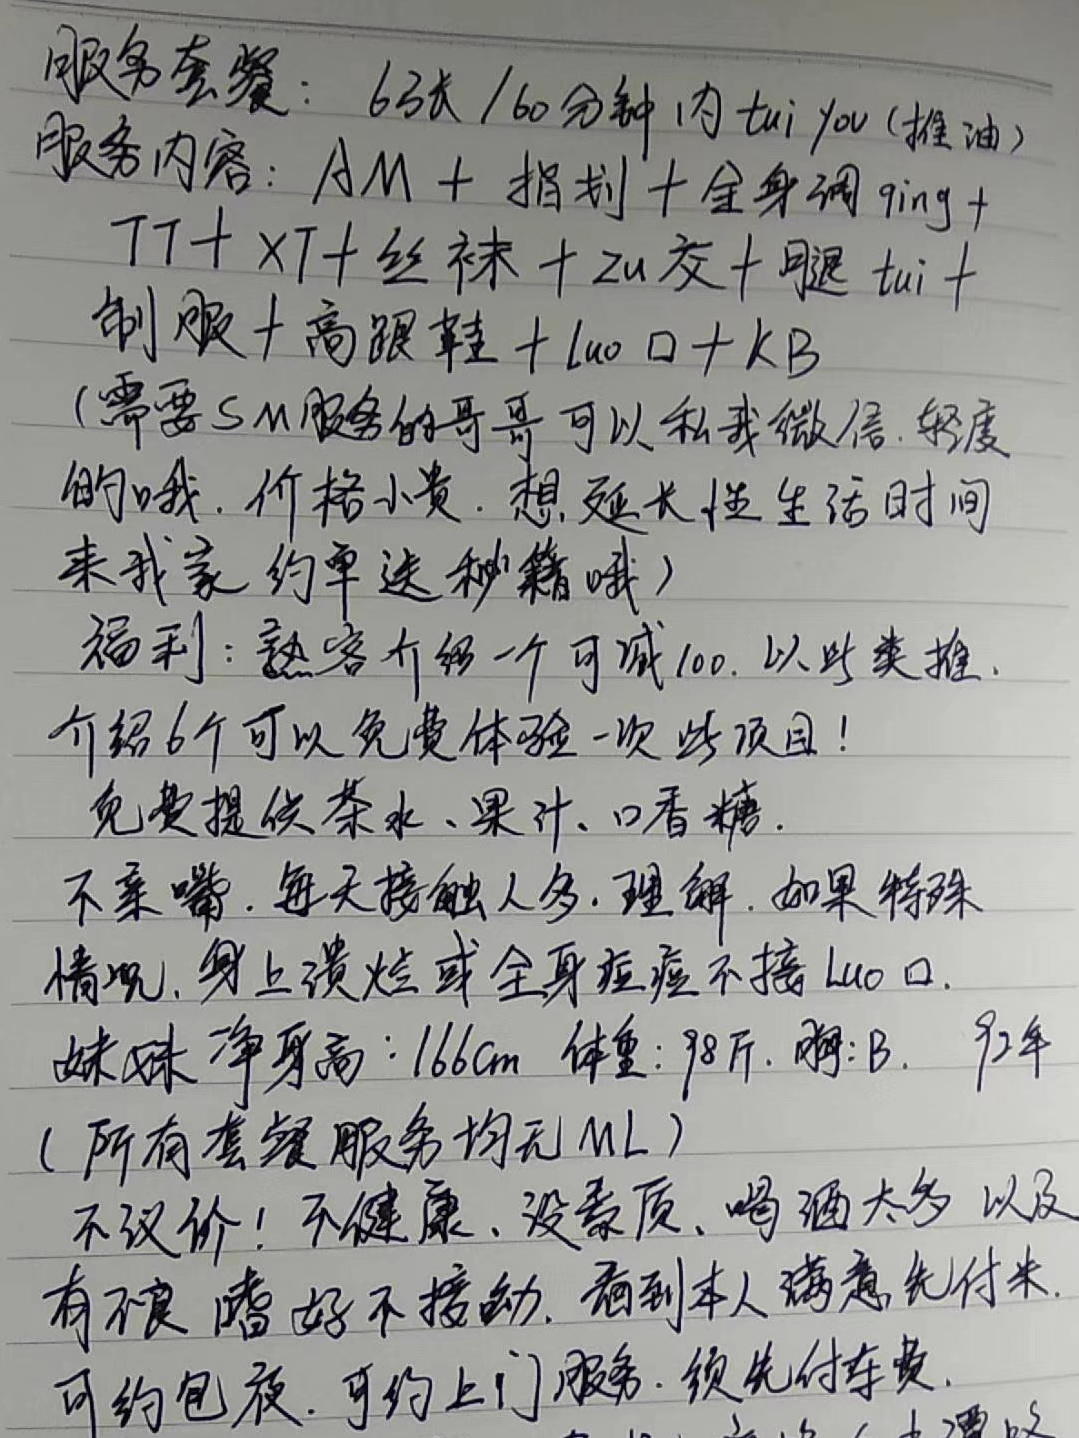 服务套餐：63张/60分钟内tui you（推油）
服务内容：AM+指划+全身调qing+
TT+XT+丝袜+zu交+腿tui+
制服+高跟鞋+luo口+KB
（需要SM服务的哥哥可以私我微信.轻度
的哦.价格小贵.想延长性生活时间
来我家约单送秘籍哦）
福利：熟客介绍一个可减100.以此类推.
介绍6个可以免费体验一次此项目！
免费提供茶水、果汁、口香糖.
不亲嘴.每天接触人多.理解.如果特殊
情况.身上溃烂或全身痘痘不接Luo口.
妹妹净身高：166cm 体重：98斤.胸：B. 92年
（所有套餐服务均无ML）
不议价！不健康、没素质、喝酒太多以及
有不良嗜好不接呦.看到本人满意先付米.
可约包夜.可约上门服务.须先付车费.